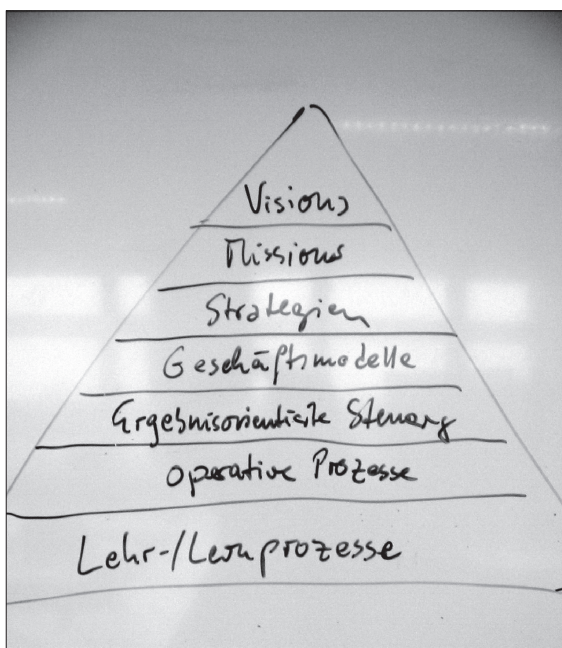 Visions
Missions
Strategien
Geschäftsmodelle
Ergebnisorientierte Steuerung
Operative Prozesse
Lehr-/Lernprozesse